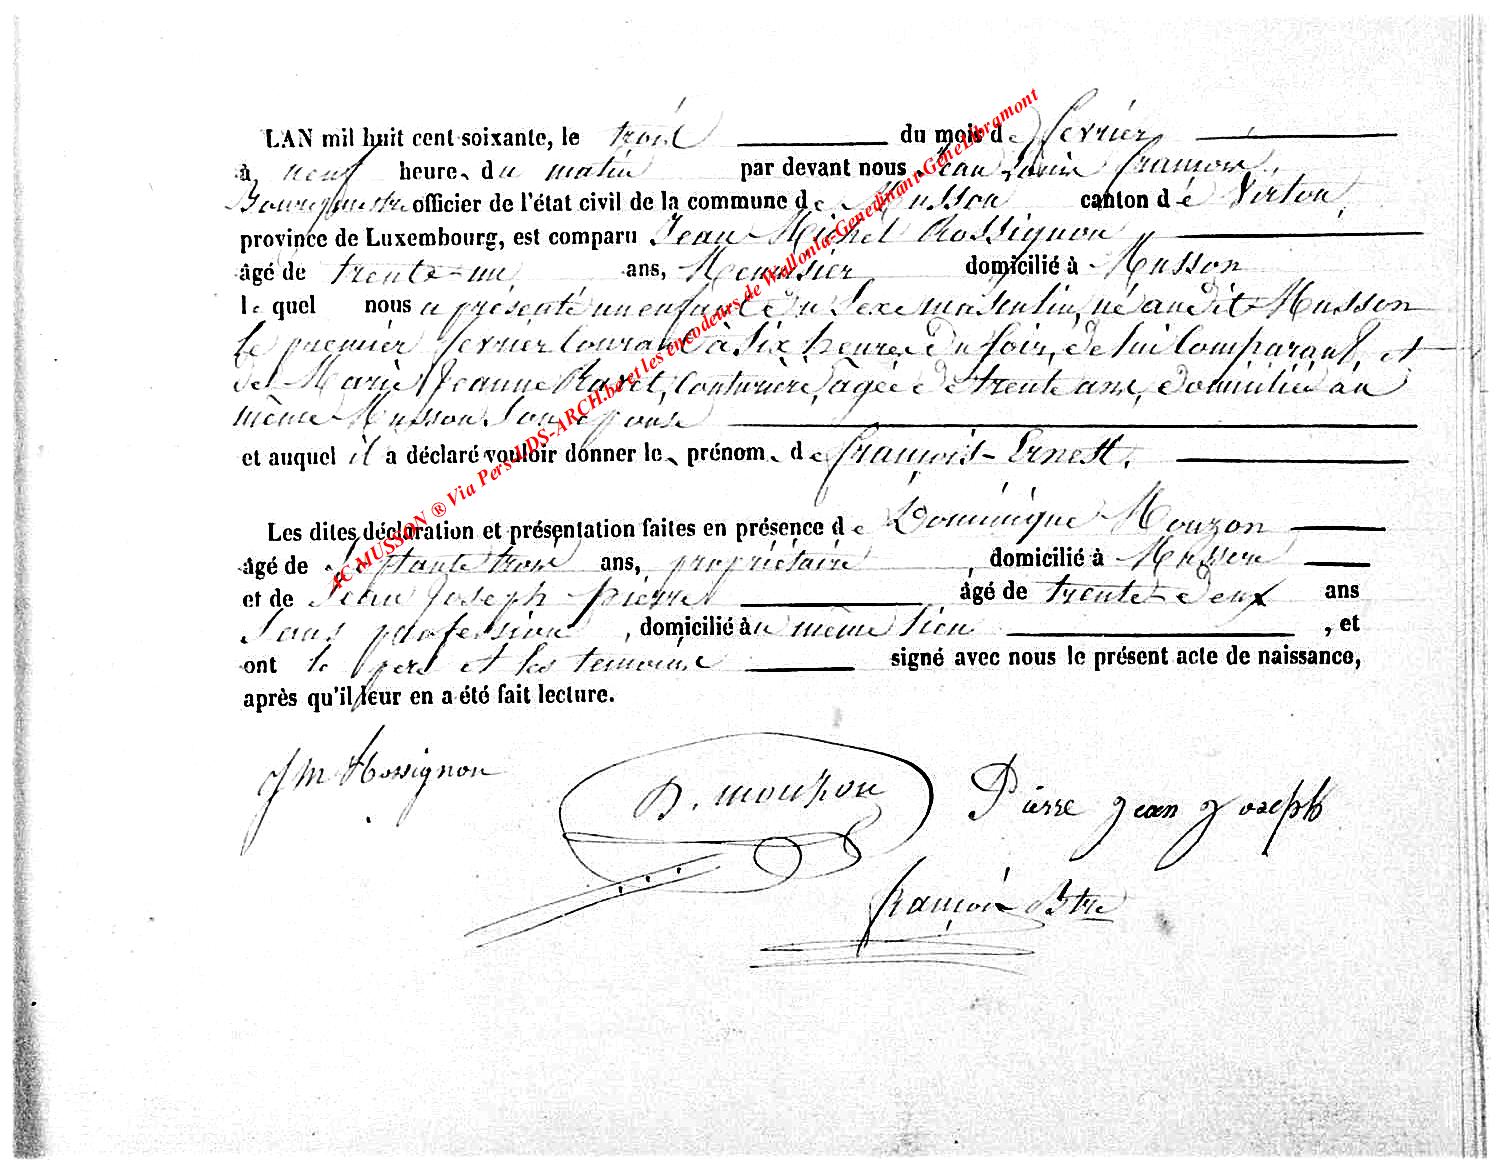 LAN mil huit cent soixante, le trois du mois de février
à neuf heures du matin par devant nous Jean Louis François,
Bourgmestre officier de l'état civil de la commune de Musson canton de Virton,
province de Luxembourg, est comparu Jean Michel Rossignon
âgé de trente-un ans, Menuisier domicilié à Musson
lequel nous a présenté un enfant du sexe masculin, né au dit Musson
le premier février courant à six heures du soir, de lui comparant, et
de Marie Jeanne, couturière, âgée de trente ans, domiciliée au
même Musson son épouse
et auquel il a déclaré vouloir donner les prénoms de François-Ernest.
Les dites déclaration et présentation faites en présence de Dominique Mouzon
âgé de septante trois ans, propriétaire, domicilié à Musson
et de Jean Joseph Pierre âgé de trente-deux ans
sans profession, domicilié au même lieu, et
ont le père et les témoins signé avec nous le présent acte de naissance,
après qu'il leur en a été fait lecture.
JM Rossignon
D. mouzon
Pierre jean joseph
François Btre
AC MUSSON ® Via Pers-LDS-ARCH.be et les encodeurs de Wallonia-Genedinant-GeneLibramont